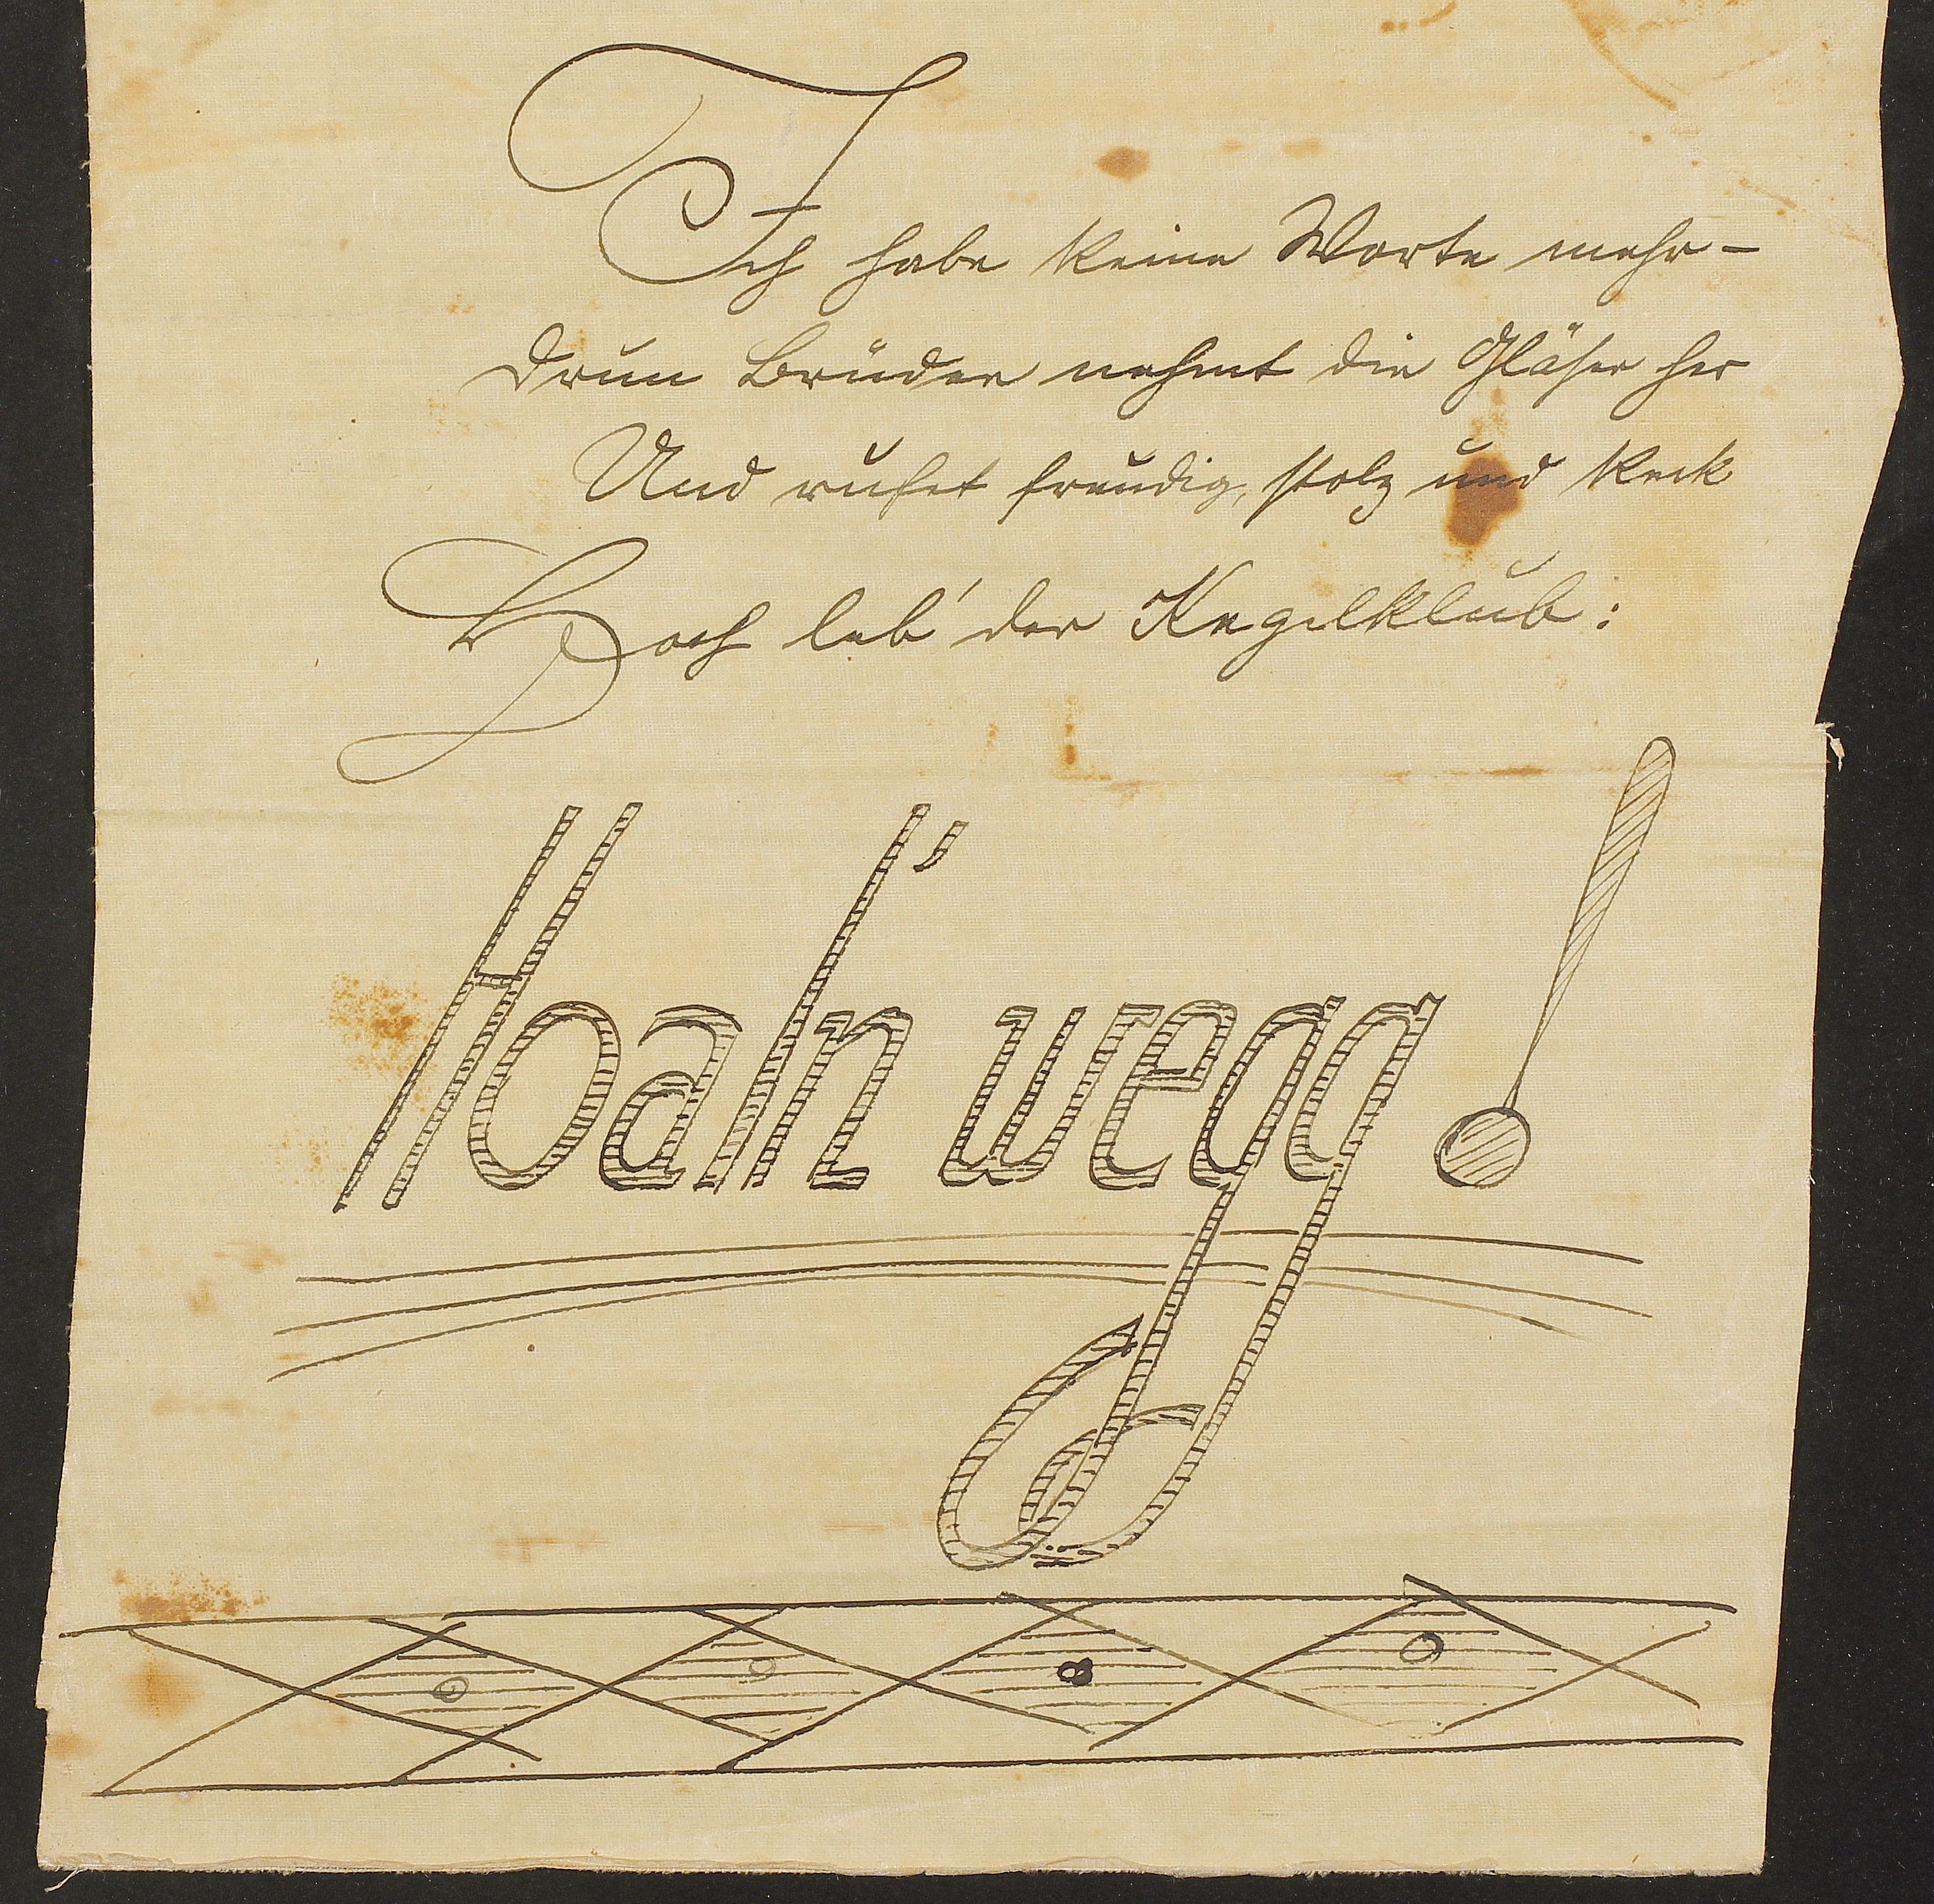 Ich habe keine Worte mehr –
Drum Brüder nehmt die Gläser her
Und rufet freudig, stolz und keck
Hoch leb' der Kegelklub:
Hoaln' wegg!